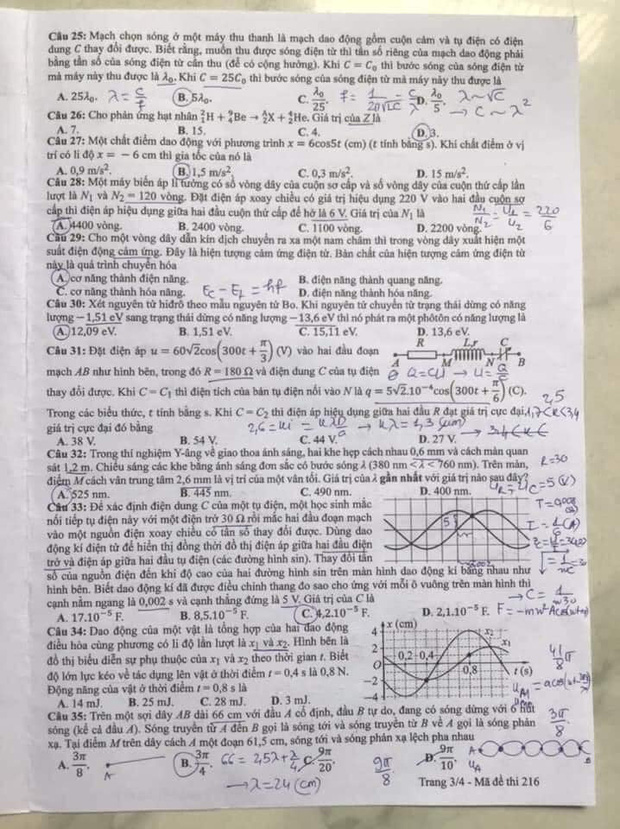 Câu 25: Mạch chọn sóng ở một máy thu thanh là mạch dao động gồm cuộn cảm và tụ điện có điện
dung C thay đổi được. Biết rằng, muốn thu được sóng điện từ thì tần số riêng của mạch dao động phải
bằng tần số của sóng điện từ cần thu (để có cộng hưởng). Khi C = C₀ thì bước sóng của sóng điện từ
mà máy này thu được là λ₀. Khi C = 25C₀ thì bước sóng của sóng điện từ mà máy này thu được là
A. 25λ₀. λ = c/f B. 5λ₀. C. λ₀/25. f = 1/2π√LC = c/λ D. λ₀/5. λ ~ √C → C ~ λ²
Câu 26: Cho phản ứng hạt nhân ²₁H + ⁹₄Be → ᴬ_Z X + ⁴₂He. Giá trị của Z là
A. 7. B. 15. C. 4. D. 3.
Câu 27: Một chất điểm dao động với phương trình x = 6cos5t (cm) (t tính bằng s). Khi chất điểm ở vị
trí có li độ x = − 6 cm thì gia tốc của nó là
A. 0,9 m/s². B. 1,5 m/s². C. 0,3 m/s². D. 15 m/s².
Câu 28: Một máy biến áp lí tưởng có số vòng dây của cuộn sơ cấp và số vòng dây của cuộn thứ cấp lần
lượt là N₁ và N₂ = 120 vòng. Đặt điện áp xoay chiều có giá trị hiệu dụng 220 V vào hai đầu cuộn sơ
cấp thì điện áp hiệu dụng giữa hai đầu cuộn thứ cấp để hở là 6 V. Giá trị của N₁ là N₁/N₂ = U₁/U₂ = 220/6
A. 4400 vòng. B. 2400 vòng. C. 1100 vòng. D. 2200 vòng.
Câu 29: Cho một vòng dây dẫn kín dịch chuyển ra xa một nam châm thì trong vòng dây xuất hiện một
suất điện động cảm ứng. Đây là hiện tượng cảm ứng điện từ. Bản chất của hiện tượng cảm ứng điện từ
này là quá trình chuyển hóa
A. cơ năng thành điện năng. B. điện năng thành quang năng.
C. cơ năng thành hóa năng. D. điện năng thành hóa năng.
Câu 30: Xét nguyên tử hiđrô theo mẫu nguyên tử Bo. Khi nguyên tử chuyển từ trạng thái dừng có năng
lượng −1,51 eV sang trạng thái dừng có năng lượng −13,6 eV thì nó phát ra một phôtôn có năng lượng là
A. 12,09 eV. B. 1,51 eV. C. 15,11 eV. D. 13,6 eV.
Câu 31: Đặt điện áp u = 60√2cos(300t + π/3) (V) vào hai đầu đoạn
R L,r C
A N B
mạch AB như hình bên, trong đó R = 180 Ω và điện dung C của tụ điện
thay đổi được. Khi C = C₁ thì điện tích của bản tụ điện nối vào N là q = 5√2.10⁻⁴cos(300t + π/6) (C).
Trong các biểu thức, t tính bằng s. Khi C = C₂ thì điện áp hiệu dụng giữa hai đầu R đạt giá trị cực đại,
giá trị cực đại đó bằng
A. 38 V. B. 54 V. C. 44 V. D. 27 V.
Câu 32: Trong thí nghiệm Y-âng về giao thoa ánh sáng, hai khe hẹp cách nhau 0,6 mm và cách màn quan
sát 1,2 m. Chiếu sáng các khe bằng ánh sáng đơn sắc có bước sóng λ (380 nm < λ < 760 nm). Trên màn,
điểm M cách vân trung tâm 2,6 mm là vị trí của một vân tối. Giá trị của λ gần nhất với giá trị nào sau đây?
A. 525 nm. B. 445 nm. C. 490 nm. D. 400 nm.
Câu 33: Để xác định điện dung C của một tụ điện, một học sinh mắc
nối tiếp tụ điện này với một điện trở 30 Ω rồi mắc hai đầu đoạn mạch
vào một nguồn điện xoay chiều có tần số thay đổi được. Dùng dao
động kí điện tử để hiển thị đồng thời đồ thị điện áp giữa hai đầu điện
trở và điện áp giữa hai đầu tụ điện (các đường hình sin). Thay đổi tần
số của nguồn điện đến khi độ cao của hai đường hình sin trên màn hình dao động kí bằng nhau như
hình bên. Biết dao động kí đã được điều chỉnh thang đo sao cho ứng với mỗi ô vuông trên màn hình thì
cạnh nằm ngang là 0,002 s và cạnh thẳng đứng là 5 V. Giá trị của C là
A. 17.10⁻⁵ F. B. 8,5.10⁻⁵ F. C. 4,2.10⁻⁵ F. D. 2,1.10⁻⁵ F.
Câu 34: Dao động của một vật là tổng hợp của hai dao động
điều hòa cùng phương có li độ lần lượt là x₁ và x₂. Hình bên là
đồ thị biểu diễn sự phụ thuộc của x₁ và x₂ theo thời gian t. Biết
độ lớn lực kéo về tác dụng lên vật ở thời điểm t = 0,4 s là 0,8 N.
Động năng của vật ở thời điểm t = 0,8 s là
A. 14 mJ. B. 25 mJ. C. 28 mJ. D. 3 mJ.
x (cm)
4
2
0
−2
−4
0,2 0,4
0,8
t (s)
x₂
x₁
Câu 35: Trên một sợi dây AB dài 66 cm với đầu A cố định, đầu B tự do, đang có sóng dừng với 6 nút
sóng (kể cả đầu A). Sóng truyền từ A đến B gọi là sóng tới và sóng truyền từ B về A gọi là sóng phản
xạ. Tại điểm M trên dây cách A một đoạn 61,5 cm, sóng tới và sóng phản xạ lệch pha nhau
A. 3π/8. B. 3π/4. C. 9π/20. D. 9π/10.
→ λ = 24 (cm)
9π/8
Trang 3/4 - Mã đề thi 216